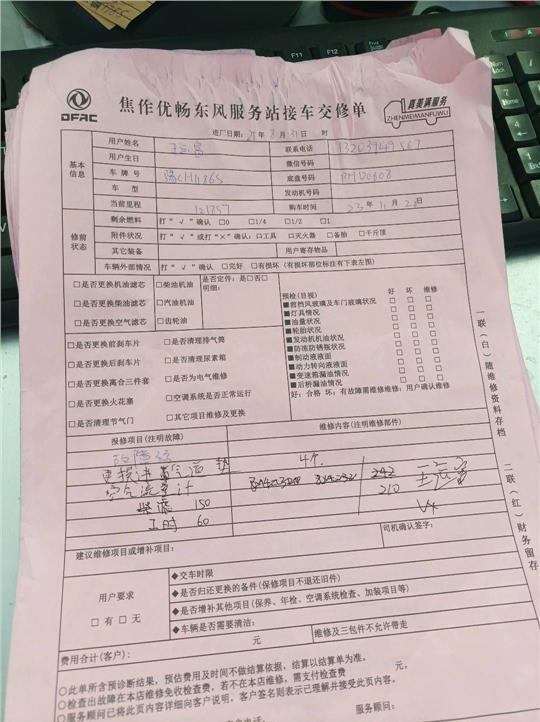 F11 F12
DFAC 焦作优畅东风服务站接车交修单 真美满服务
ZHENMEIMANFUWU
进厂日期: 年 8月31日 时
基本信息
用户姓名 联系电话
用户生日 微信号码
车牌号 豫CH1186S 底盘号码 PH00608
车型 发动机号码
当前里程 121757 购车时间 23年11月28日
修前状态
剩余燃料 打“√”确认 □0 □1/4 □1/2 □1
附件状况 打“√”或打“×”确认:□工具 □灭火器 □备胎 □千斤顶
其它装备 用户寄存物品
车辆外部情况 打“√”确认 □完好 □有损坏(有损坏部位标注有下表左图)
□是否更换机油滤芯 □柴油机油 是否定件:是□否□
□是否更换柴油滤芯 □汽油机油 明细:
□是否更换空气滤芯 □齿轮油
□是否更换前刹车片 □是否清理排气筒
□是否更换后刹车片 □是否清理尿素箱
□是否更换离合三件套 □是否为电气维修
□是否更换火花塞 □空调系统是否正常运行
□是否清理节气门 □其它项目维修及更换
预检(目视) 好 坏 维修
■前挡风玻璃及车门玻璃状况 □ □ □
■灯具情况 □ □ □
■油量状况 □ □ □
■轮胎状况 □ □ □
■发动机机油状况 □ □ □
■防冻防锈瓶状况 □ □ □
■制动液液面 □ □ □
■动力转向液液面 □ □ □
■变速箱漏油情况 □ □ □
■后桥漏油情况 □ □ □
好:合格 坏:有故障需维修维修:用户确认维修
报修项目(注明故障) 维修内容(注明维修部件)
更换进气 垫 4个
空气流量计 242
150 210
工时 60
司机确认签字:
建议维修项目或增补项目:
用户要求
□有 □无
◆交车时限
◆是否归还更换的备件(保修项目不退还旧件)
◆是否增补其他项目(保养、年检、空调系统检查、加装项目等)
◆车辆是否需要清洁:
费用合计(客户): 元 维修及三包件不允许带走
○此单所含预诊断结果,预估费用及时间不做结算依据,结算以结算单为准。
○检查出故障在本店维修免收检查费,若不在本店维修,需支付检查费 元。
○服务顾问已将此页内容详细向客户说明,客户签名则表示已理解并接受此页内容。
客户电话: 服务顾问:
一联(白)随维修资料存档
二联(红)财务留存